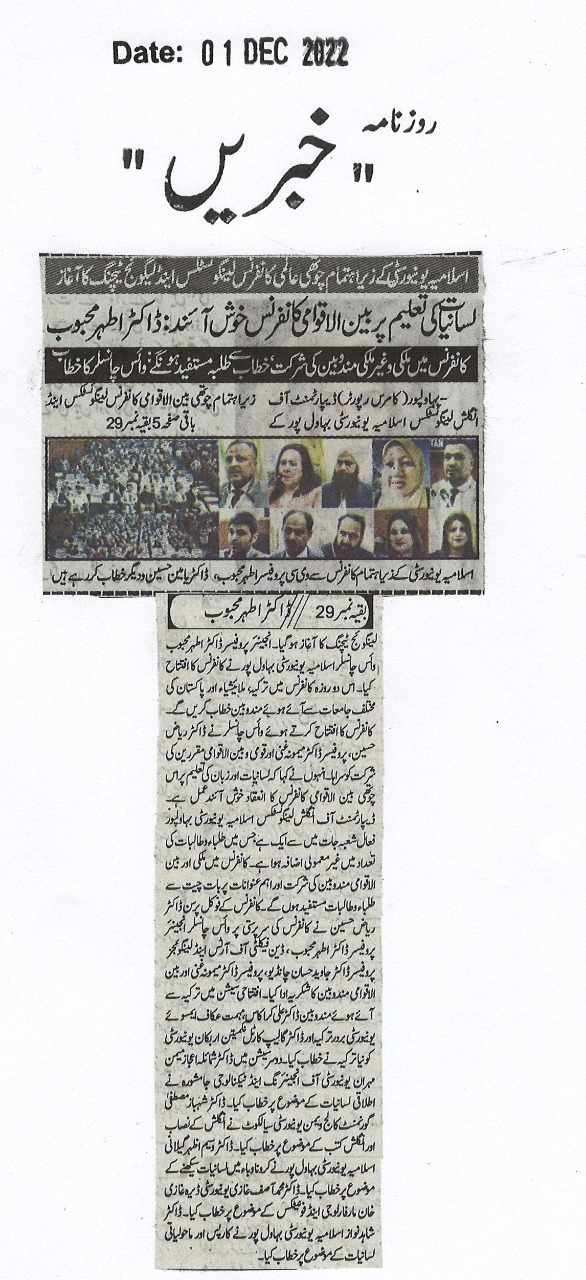 Date: 01 DEC 2022
روزنامہ
"خبریں"
اسلامیہ یونیورسٹی کے زیر اہتمام چوتھی عالمی کانفرنس لینگوئسٹکس اینڈ لینگوئج ٹیچنگ کا آغاز
لسانیات کی تعلیم پر بین الاقوامی کانفرنس خوش آئند: ڈاکٹر اطہر محبوب
کانفرنس میں ملکی و غیر ملکی مندوبین کی شرکت، خطاب سے طلبہ مستفید ہونگے، وائس چانسلر کا خطاب
بہاولپور (کامرس رپورٹر) ڈیپارٹمنٹ آف
انگلش لینگوئسٹکس اسلامیہ یونیورسٹی بہاول پور کے
زیر اہتمام چوتھی بین الاقوامی کانفرنس لینگوئسٹکس اینڈ
باقی صفحہ 5 بقیہ نمبر 29
اسلامیہ یونیورسٹی کے زیر اہتمام کانفرنس سے وی سی پروفیسر اطہر محبوب، ڈاکٹر یامین حسین و دیگر خطاب کر رہے ہیں
بقیہ نمبر 29 // ڈاکٹر اطہر محبوب
لینگوئج ٹیچنگ کا آغاز ہو گیا۔ انجینئر پروفیسر ڈاکٹر اطہر محبوب
وائس چانسلر اسلامیہ یونیورسٹی بہاول پور نے کانفرنس کا افتتاح
کیا۔ اس دو روزہ کانفرنس میں ترکیہ، ملائیشیاء اور پاکستان کی
مختلف جامعات سے آئے ہوئے مندوبین خطاب کریں گے۔
کانفرنس کا افتتاح کرتے ہوئے وائس چانسلر نے ڈاکٹر ریاض
حسین، پروفیسر ڈاکٹر میمونہ غنی اور قومی و بین الاقوامی مقررین کی
شرکت کو سراہا۔ انہوں نے کہا کہ لسانیات اور زبان کی تعلیم پر اس
چوتھی بین الاقوامی کانفرنس کا انعقاد خوش آئند عمل ہے۔
ڈیپارٹمنٹ آف انگلش لینگوئسٹکس اسلامیہ یونیورسٹی بہاولپور
فعال شعبہ جات میں سے ایک ہے جس میں طلباء و طالبات کی
تعداد میں غیر معمولی اضافہ ہوا ہے۔ کانفرنس میں ملکی اور بین
الاقوامی مندوبین کی شرکت اور اہم عنوانات پر بات چیت سے
طلباء و طالبات مستفید ہوں گے۔ کانفرنس کے فوکل پرسن ڈاکٹر
ریاض حسین نے کانفرنس کی سرپرستی پر وائس چانسلر انجینئر
پروفیسر ڈاکٹر اطہر محبوب، ڈین فیکلٹی آف آرٹس اینڈ لینگوئجز
پروفیسر ڈاکٹر جاوید حسان چانڈیو، پروفیسر ڈاکٹر میمونہ غنی اور بین
الاقوامی مندوبین کا شکریہ ادا کیا۔ افتتاحی سیشن میں ترکیہ سے
آئے ہوئے مندوبین ڈاکٹر علی کراکاس، مہمت عکاف ایسوئے
یونیورسٹی بردر ترکیہ اور ڈاکٹر گالیپ کارٹل نجمیٹن اربکان یونیورسٹی
کونیا ترکیہ نے خطاب کیا۔ دوسرے سیشن میں ڈاکٹر شمائلہ اعجاز میمن
مہران یونیورسٹی آف انجینئرنگ اینڈ ٹیکنالوجی جامشورو نے
اطلاقی لسانیات کے موضوع پر خطاب کیا۔ ڈاکٹر شہباز مصطفیٰ
گورنمنٹ کالج ویمن یونیورسٹی سیالکوٹ نے انگلش کے نصاب
اور انگلش کتب کے موضوع پر خطاب کیا۔ ڈاکٹر وسیم اظہر گیلانی
اسلامیہ یونیورسٹی بہاول پور نے کرونا وباء میں لسانیات سیکھنے کے
موضوع پر خطاب کیا۔ ڈاکٹر محمد آصف غازی یونیورسٹی ڈیرہ غازی
خان مارفارلوجی اینڈ فونیٹکس کے موضوع پر خطاب کیا۔ ڈاکٹر
شاہد نواز اسلامیہ یونیورسٹی بہاول پور نے کارپس اور ماحولیاتی
لسانیات کے موضوع پر خطاب کیا۔